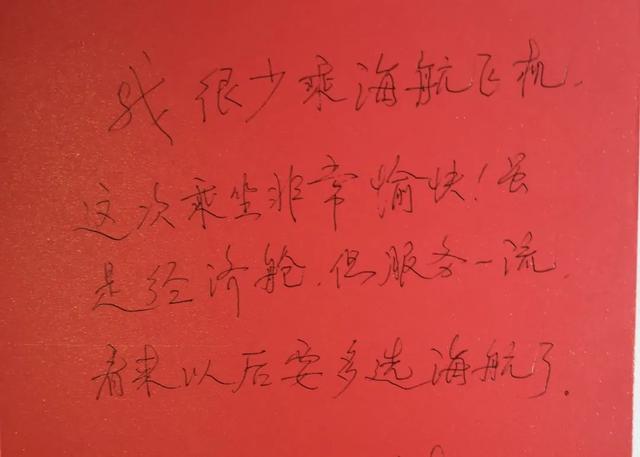 我很少乘海航飞机.
这次乘坐非常愉快!虽
是经济舱.但服务一流.
看来以后要多选海航了.